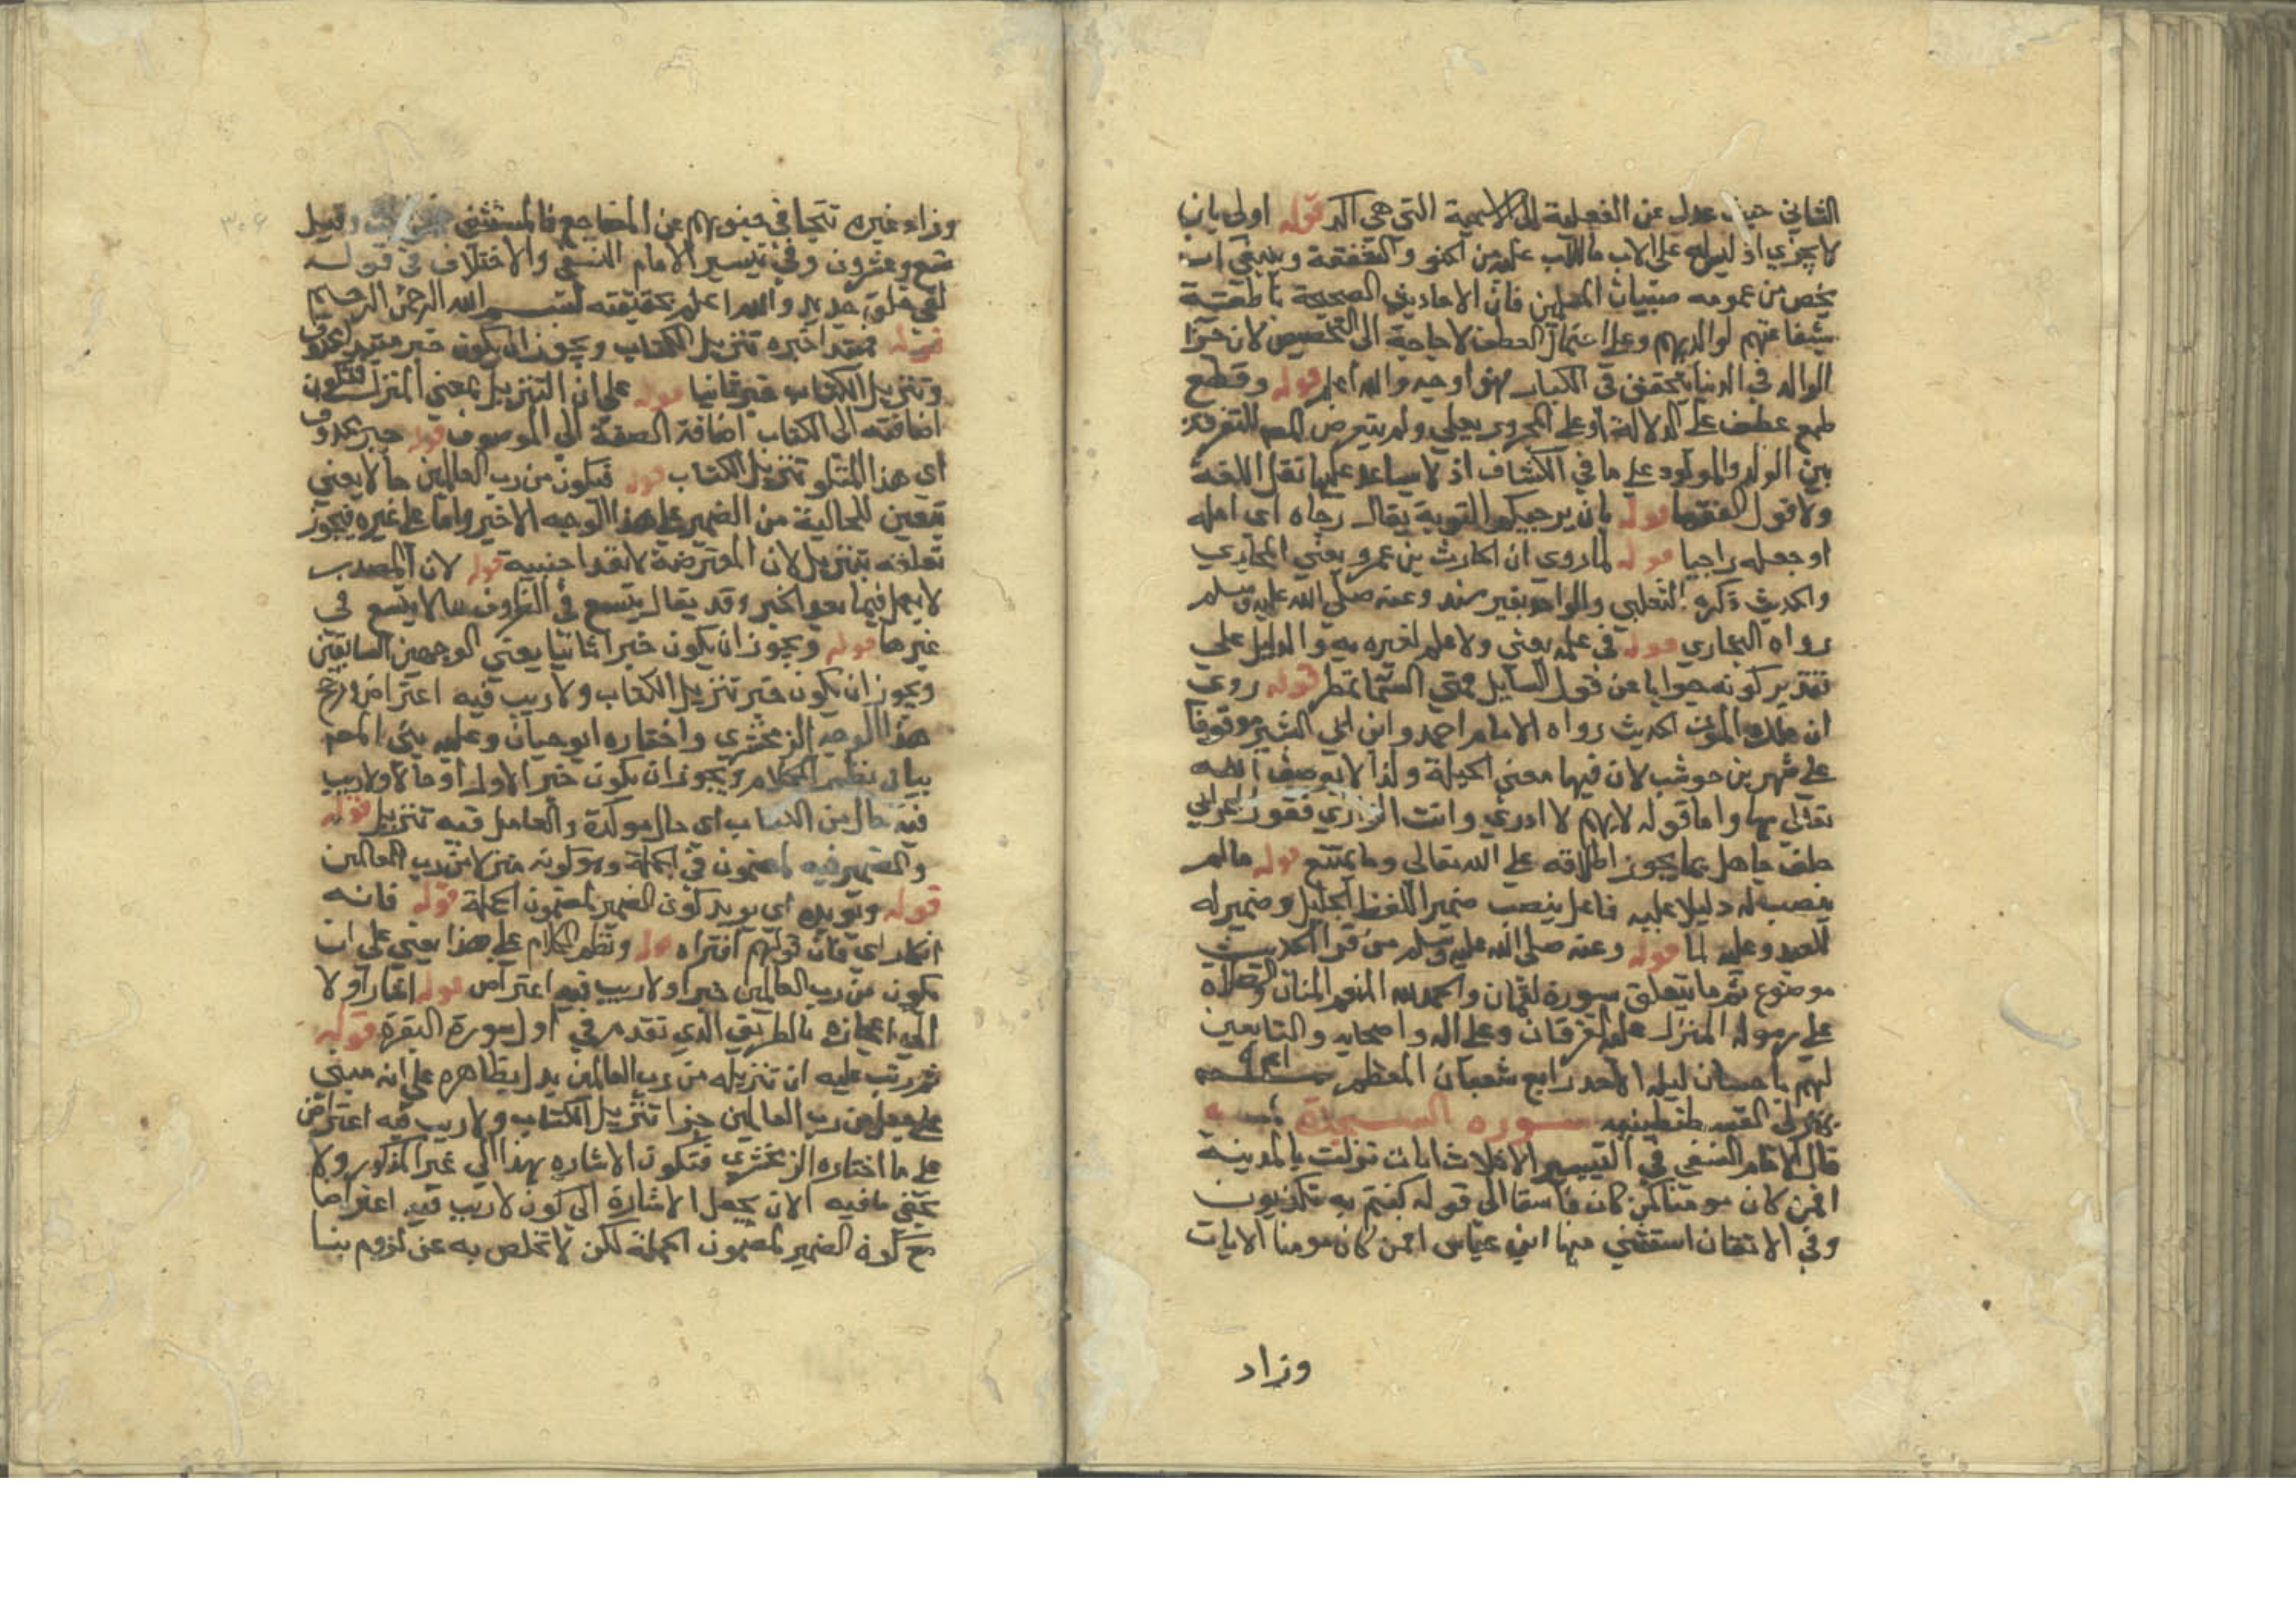 الثاني حيث عدل عن الفعلية الى الاسمية التي هي اكد قوله اولى بان
لا يجزي اذ ليس له على الاب ما للاب عليه من الحنو والشفقة وينبغي ان
يخص من عمومه صبيان المسلمين فان الاحاديث الصحيحة ناطقة
بشفاعتهم لوالديهم وعلى احتمال العطف لا حاجة الى التخصيص لان جزا
الوالد في الدنيا يتحقق في الكبار فهو اوجه والله اعلم قوله وقطع
طمع عطف على الدلالة او على المجرور بعلى ولم يتعرض المص للتفرقة
بين الولد والمولود على ما في الكشاف اذ لا يساعد عليها نقل اللغة
ولا قول الفقها قوله بان يرجيكم التوبة يقال رجاه اي امله
او جعله راجيا قوله لما روي ان الحارث بن عمرو يعني المحاربي
والحديث ذكره الثعلبي والواحدي بغير سند وعنه صلى الله عليه وسلم
رواه البخاري قوله في علمه يعني ولا علم لغيره به والدليل على
تقدير كونه جوابا عن قول السايل متى السما تمطر قوله روي
ان ملك الموت الحديث رواه الامام احمد وابن ابي شيبة موقوفا
على شهر بن حوشب لان فيها معنى الحيلة ولذا لا يوصف الله
تعالى بها واما قوله لاهم لا ادري وانت الداري فقول اعرابي
جلف جاهل بما يجوز اطلاقه على الله تعالى وما يمتنع قوله ما لم
ينصب له دليلا عليه فاعل ينصب ضمير اللفظ الجليل وضمير له
للعبد وعليه لما قوله وعنه صلى الله عليه وسلم من قرا الحديث
موضوع ثم ما يتعلق بسورة لقمان والحمد لله المنعم المنان والصلاة
على رسوله المنزل عليه الفرقان وعلى اله واصحابه والتابعين
لهم باحسان ليلة الاحد رابع شعبان المعظم
سورة السجدة
قال الامام النسفي في التيسير الا ثلاث ايات نزلت بالمدينة
افمن كان مومنا كمن كان فاسقا الى قوله كنتم به تكذبون
وفي الاتقان استثني منها ابن عباس افمن كان مومنا الايات
وزاد
وزاد غيره تتجافى جنوبهم عن المضاجع فالمستثنى خمس وقيل
تسع وعشرون وفي تيسير الامام النسفي والاختلاف في قوله
لفي خلق جديد والله اعلم بحقيقته بسم الله الرحمن الرحيم
قوله مبتدا خبره تنزيل الكتاب ويجوز ان يكون خبر مبتدا محذوف
وتنزيل الكتاب خبر ثانيا قوله على ان التنزيل بمعنى المنزل فتكون
اضافته الى الكتاب اضافة الصفة الى الموصوف قوله خبر محذوف
اي هذا المتلو تنزيل الكتاب قوله فيكون من رب العالمين حالا يعني
يتعين للحالية من الضمير على هذا الوجه الاخير واما على غيره فيجوز
تعلقه بتنزيل لان المعترضة لا تعد اجنبية قوله لان المصدر
لا يعمل فيما بعد الخبر وقد يقال يتسع في الظروف ما لا يتسع في
غيرها قوله ويجوز ان يكون خبرا ثانيا يعني الوجهين السابقين
ويجوز ان يكون خبر تنزيل الكتاب ولا ريب فيه اعتراض ورجح
هذا الوجه الزمخشري واختاره ابو حيان وعليه بنى المص
بيان نظم الكلام ويجوز ان يكون خبر الاول او حالا ولا ريب
فيه حال من الكتاب اي حال موكدة والعامل فيه تنزيل قوله
والضمير فيه لمضمون في الجملة وهو كونه منزلا من رب العالمين
قوله ويويده اي يويد كون الضمير لمضمون الجملة قوله فانه
انكار اي فان قولهم افتراه قوله ونظم الكلام على هذا يعني على ان
يكون من رب العالمين خبرا ولا ريب فيه اعتراض قوله اشار اولا
الى اعجازه بالطريق الذي تقدم في اول سورة البقرة قوله
ثم رتب عليه ان تنزيله من رب العالمين يدل بظاهره على انه مبني
على جعل من رب العالمين خبرا تنزيل الكتاب ولا ريب فيه اعتراض
على ما اختاره الزمخشري فتكون الاشاره بهذا الى غير المذكور ولا
يخفى ما فيه الا ان يجعل الاشارة الى كون لا ريب فيه اعتراضا
مع كون الضمير لمضمون الجملة لكن لا تخلص به عن لزوم بنا